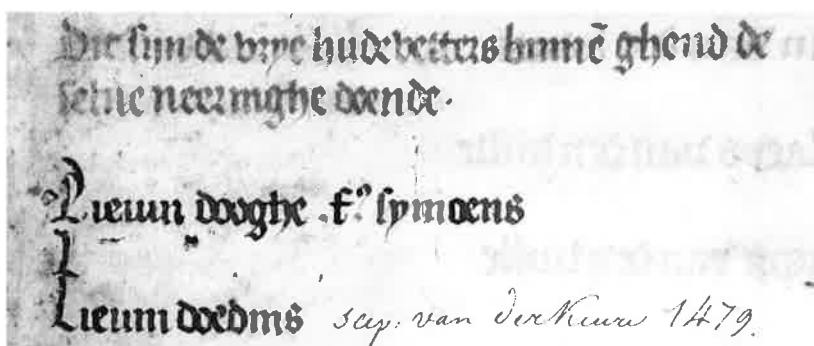 Dit sijn de vrye hudevetters binnē ghend de
selue neeringhe doende.
Lieuin dooghe .f.º symoens
Lieuin doedins scep. van der Keure 1479.